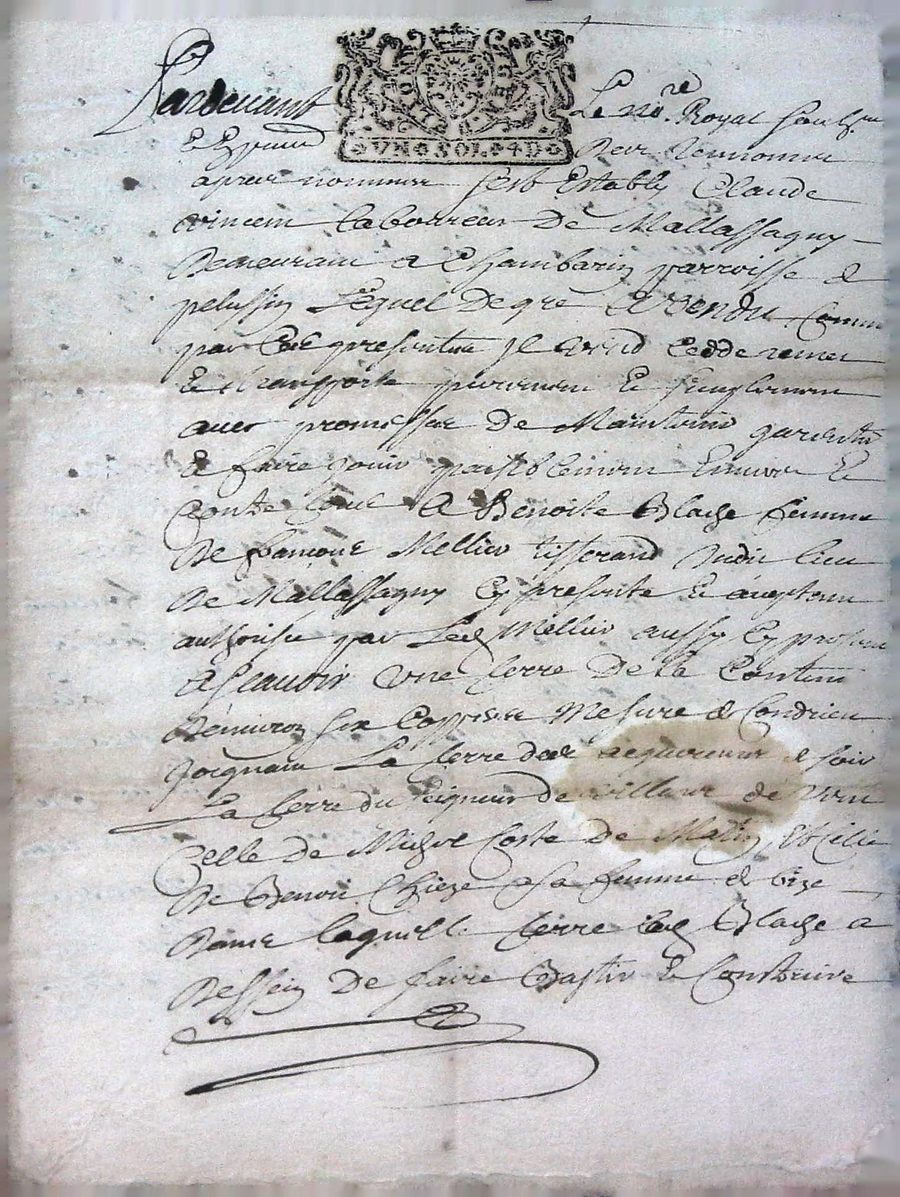 GE DE LYON
UN SOL 4D
Pardevant Le no.re Royal soub.ne
Et present Des tesmoins
apres nommes sest Estably Claude
vincent laboureur De Mallassagny
Demeurant a Chambarin parroisse de
pelussin Lequel De gre a vendu Comme
par Ces presentes Il vend Cedde remet
Et transporte purement Et simplement
avec promesse De Maintenir garentir
Et faire jouir paisiblement Envers Et
Contre tous A Benoite Blache femme
De francois Mellier tisserand dudit lieu
De Mallassagny Cy presente Et aceptant
authorisée par Led Mellier aussy Cy present
A scavoir Une terre De la Contenue
Denviron six Mesure de Condrieu
Joignant La terre de acquereur de soir
La terre du seigneur de de vent
Celle de Michel Coste De Et Celle
De Benoit Chieze a sa femme de bize
Dame laquelle terre lad Blache a
Dessein De faire Bastir Et Construire